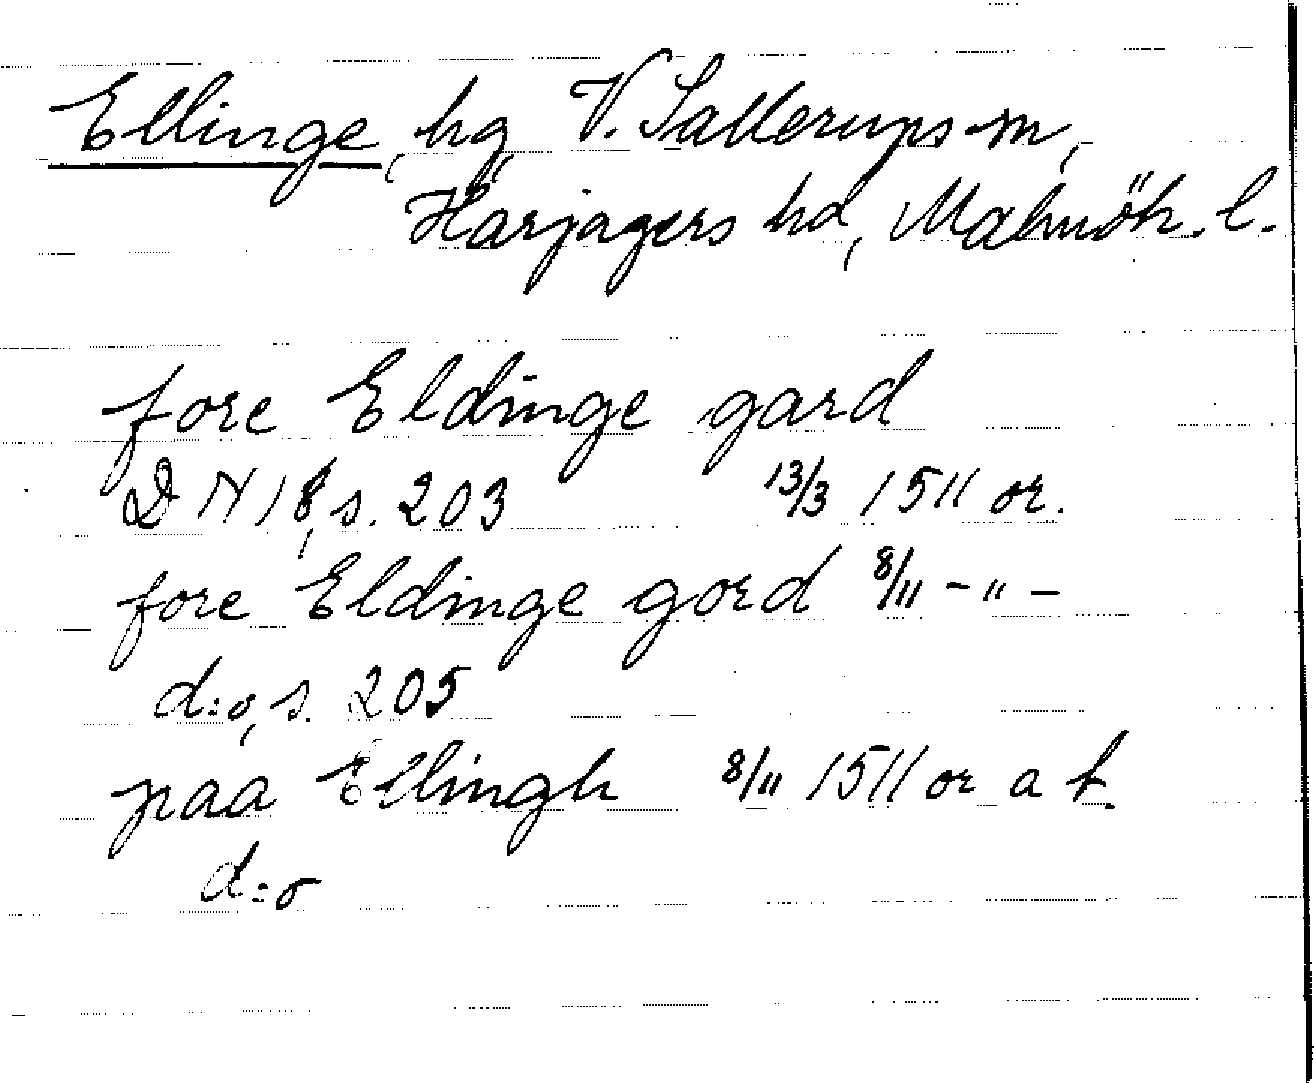 Ellinge, hg, V. Sallerups sn,
Harjagers hd, Malmöh. l.
fore Eldinge gard
DN 18, s. 203 13/3 1511 or.
fore Eldinge gord 8/11 - " -
d:o, s. 205
paa Ellingh 8/11 1511 or a t.
d:o